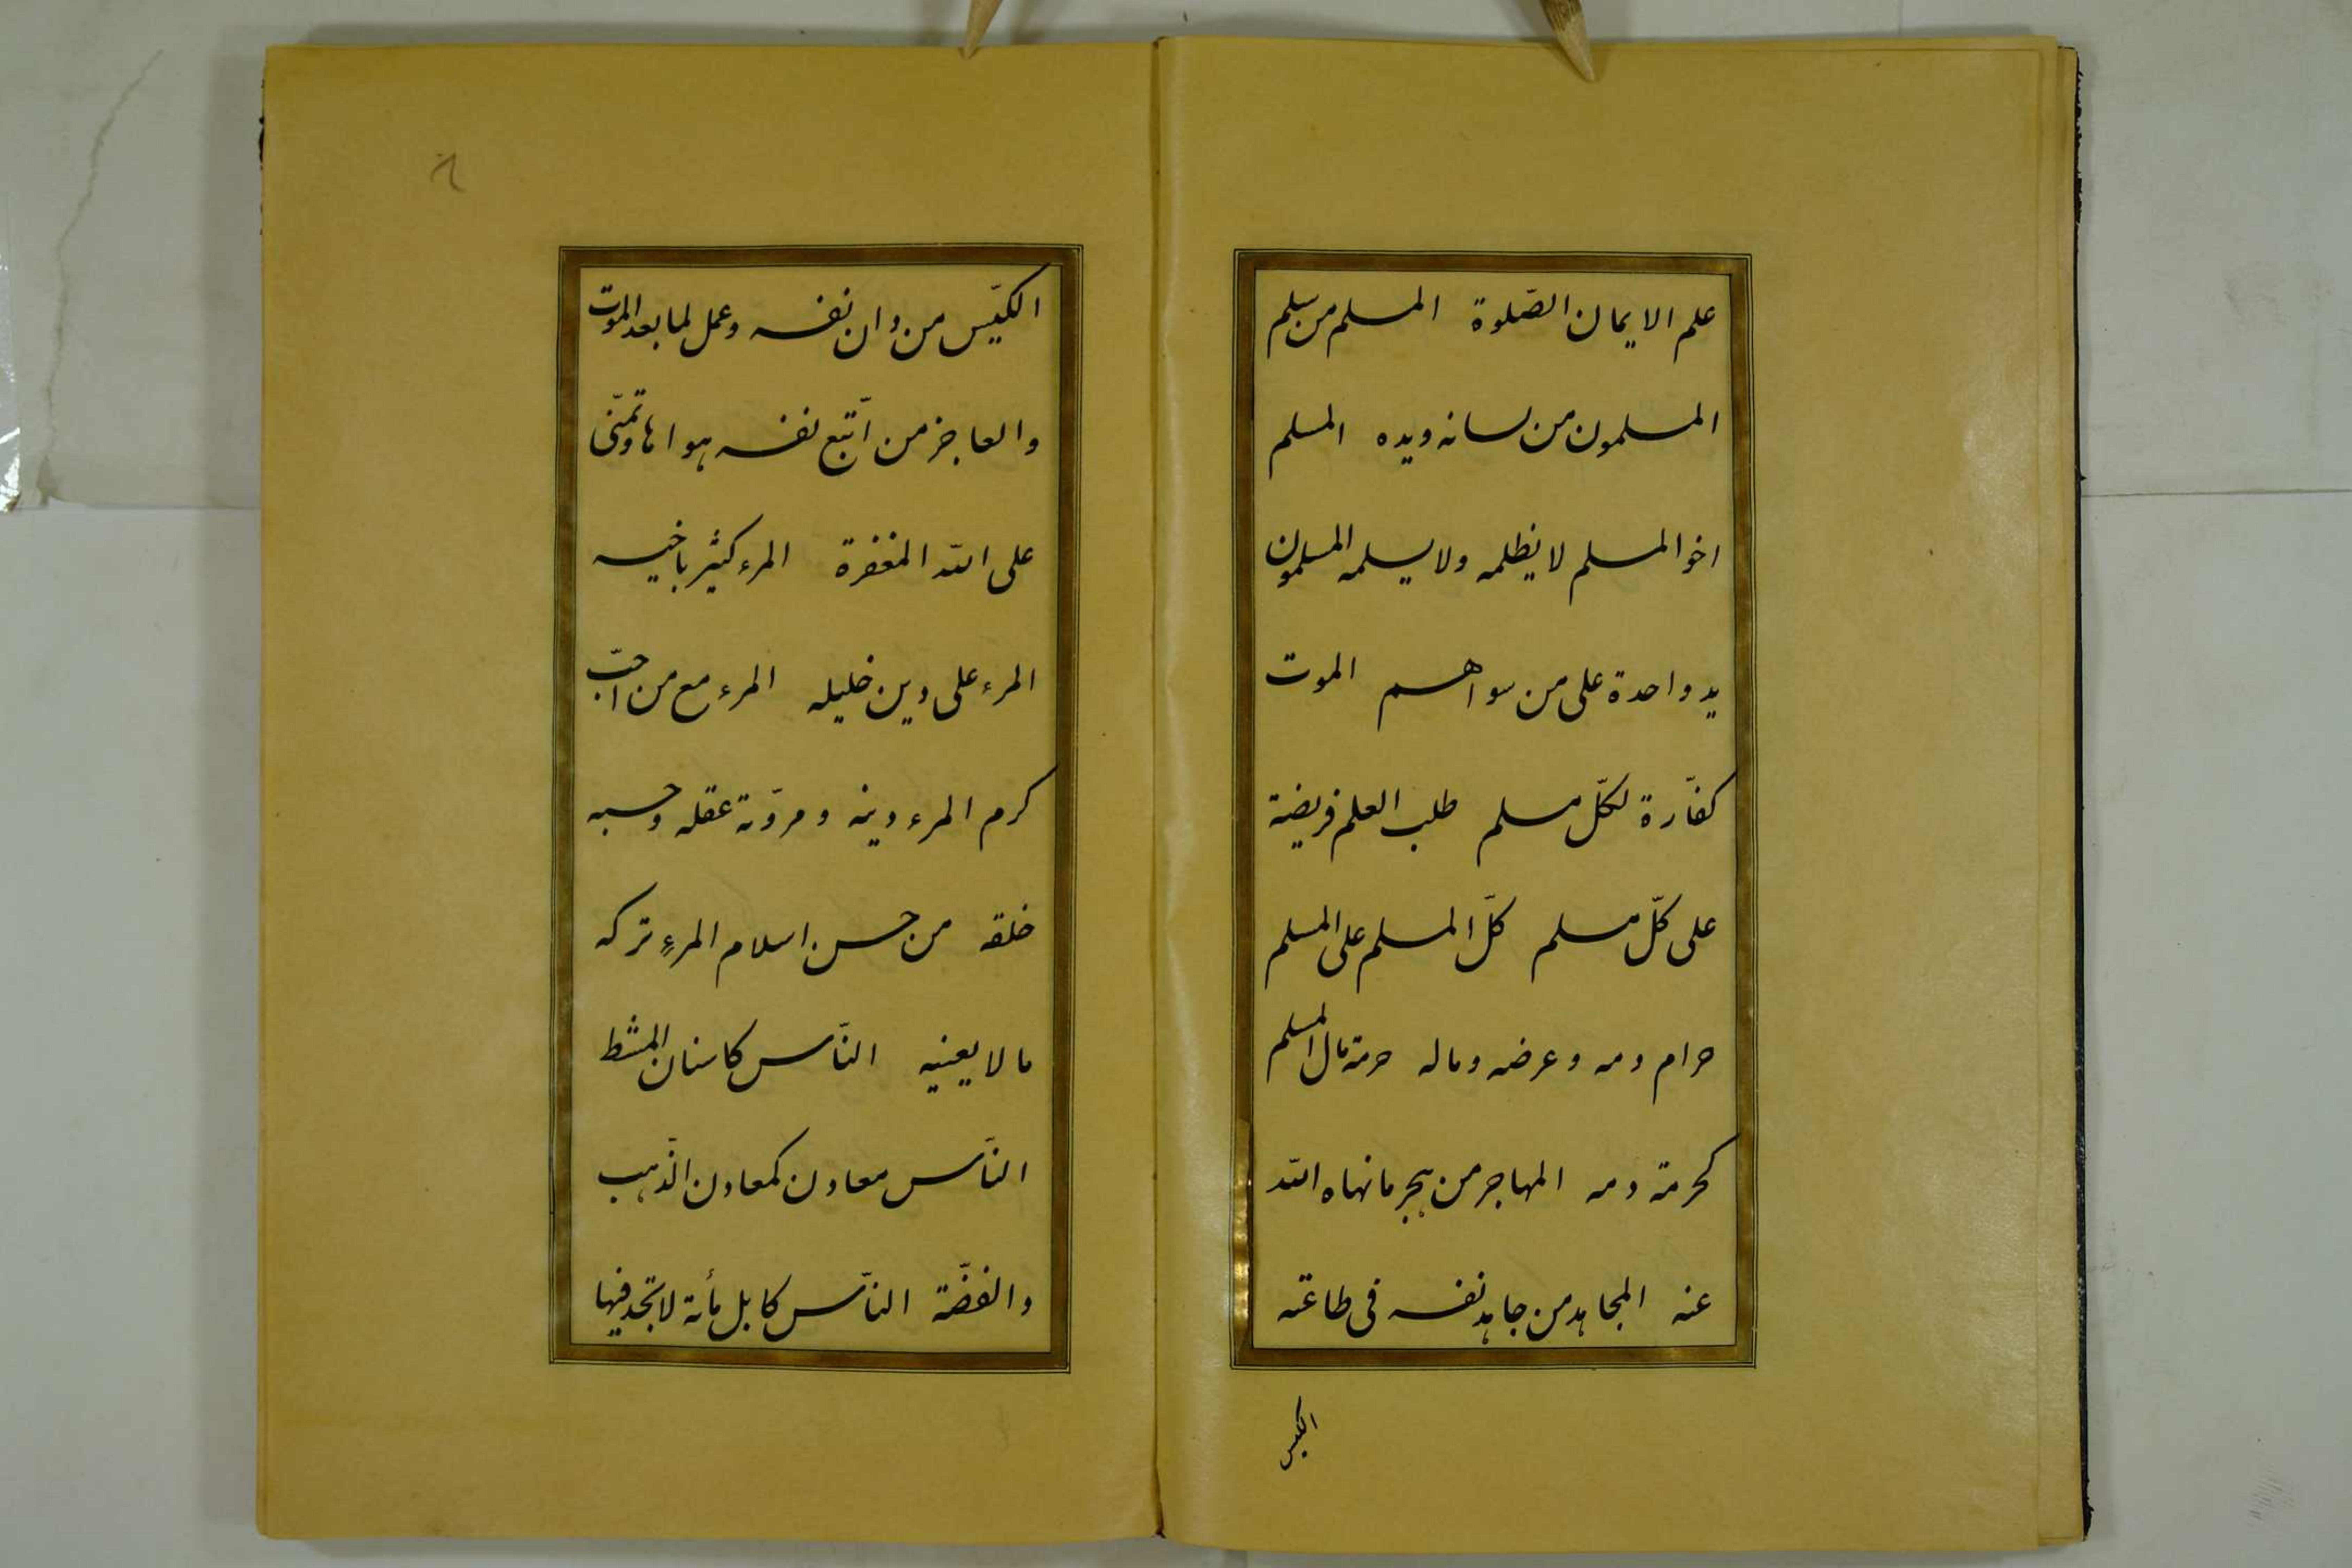 علم الايمان الصّلوة المسلم من سلم
المسلمون من لسانه ويده المسلم
اخو المسلم لا يظلمه ولا يسلمه المسلمون
يد واحدة على من سواهم الموت
كفّارة لكلّ مسلم طلب العلم فريضة
على كلّ مسلم كلّ المسلم على المسلم
حرام دمه وعرضه وماله حرمة مال المسلم
كحرمة دمه المهاجر من هجر ما نهاه الله
عنه المجاهد من جاهد نفسه فى طاعته
الكيس
٨
الكيّس من دان نفسه وعمل لما بعد الموت
والعاجز من اتّبع نفسه هواها وتمنّى
على الله المغفرة المرء كثير باخيه
المرء على دين خليله المرء مع من احبّ
كرم المرء دينه ومروّته عقله وحسبه
خلقه من حسن اسلام المرءِ تركه
ما لا يعنيه النّاس كاسنان المشط
النّاس معادن كمعادن الذّهب
والفضّة النّاس كابل مأة لا تجد فيها